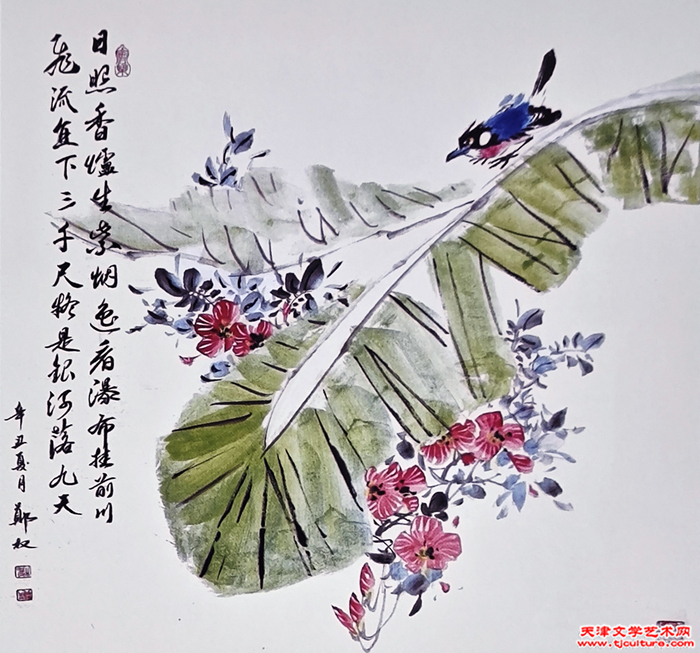 日照香爐生紫烟遥看瀑布挂前川
飛流直下三千尺疑是银河落九天
辛丑夏月 鄭权
天津文学艺术网
www.tjculture.com